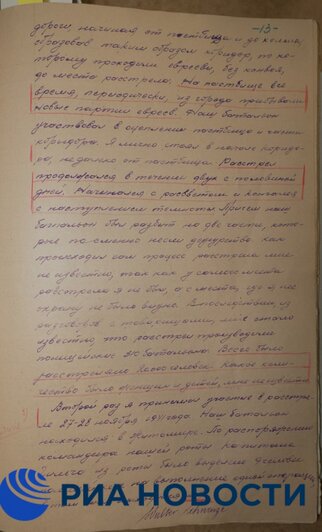 -13-
дороги, начиная от пастбища и до холма,
образовав таким образом коридор, по ко-
торому проходили евреи, без конвоя,
до места расстрела. На пастбище все
время, периодически, из города прибывали
новые партии евреев. Наш батальон
участвовал в оцеплении пастбища и части
коридора. Я лично стоял в начале коридо-
ра, недалеко от пастбища. Расстрел
продолжался в течении двух с половиной
дней. Начинался с рассветом и кончался
с наступлением темноты. Причем наш
батальон был разбит на две части, кото-
рые по сменно несли дежурство. Как
происходил сам процесс расстрела мне
не известно, так как у самого места
расстрела я не был, а с места, где я нес
охрану не было видно. Впоследствии, из
разговоров с товарищами, мне стало
известно, что расстрел производили
полицейские батальона. Всего было
расстреляно. Какое коли-
чество было женщин и детей, мне неизвестно.
Второй раз я принимал участие в расстре-
ле 27-28 ноября 1941 года. Наш батальон
находился в Житомире. По распоряжению
командира нашей роты капитана
из роты было выделено
на выполнение одной операции
РИА НОВОСТИ
Walter